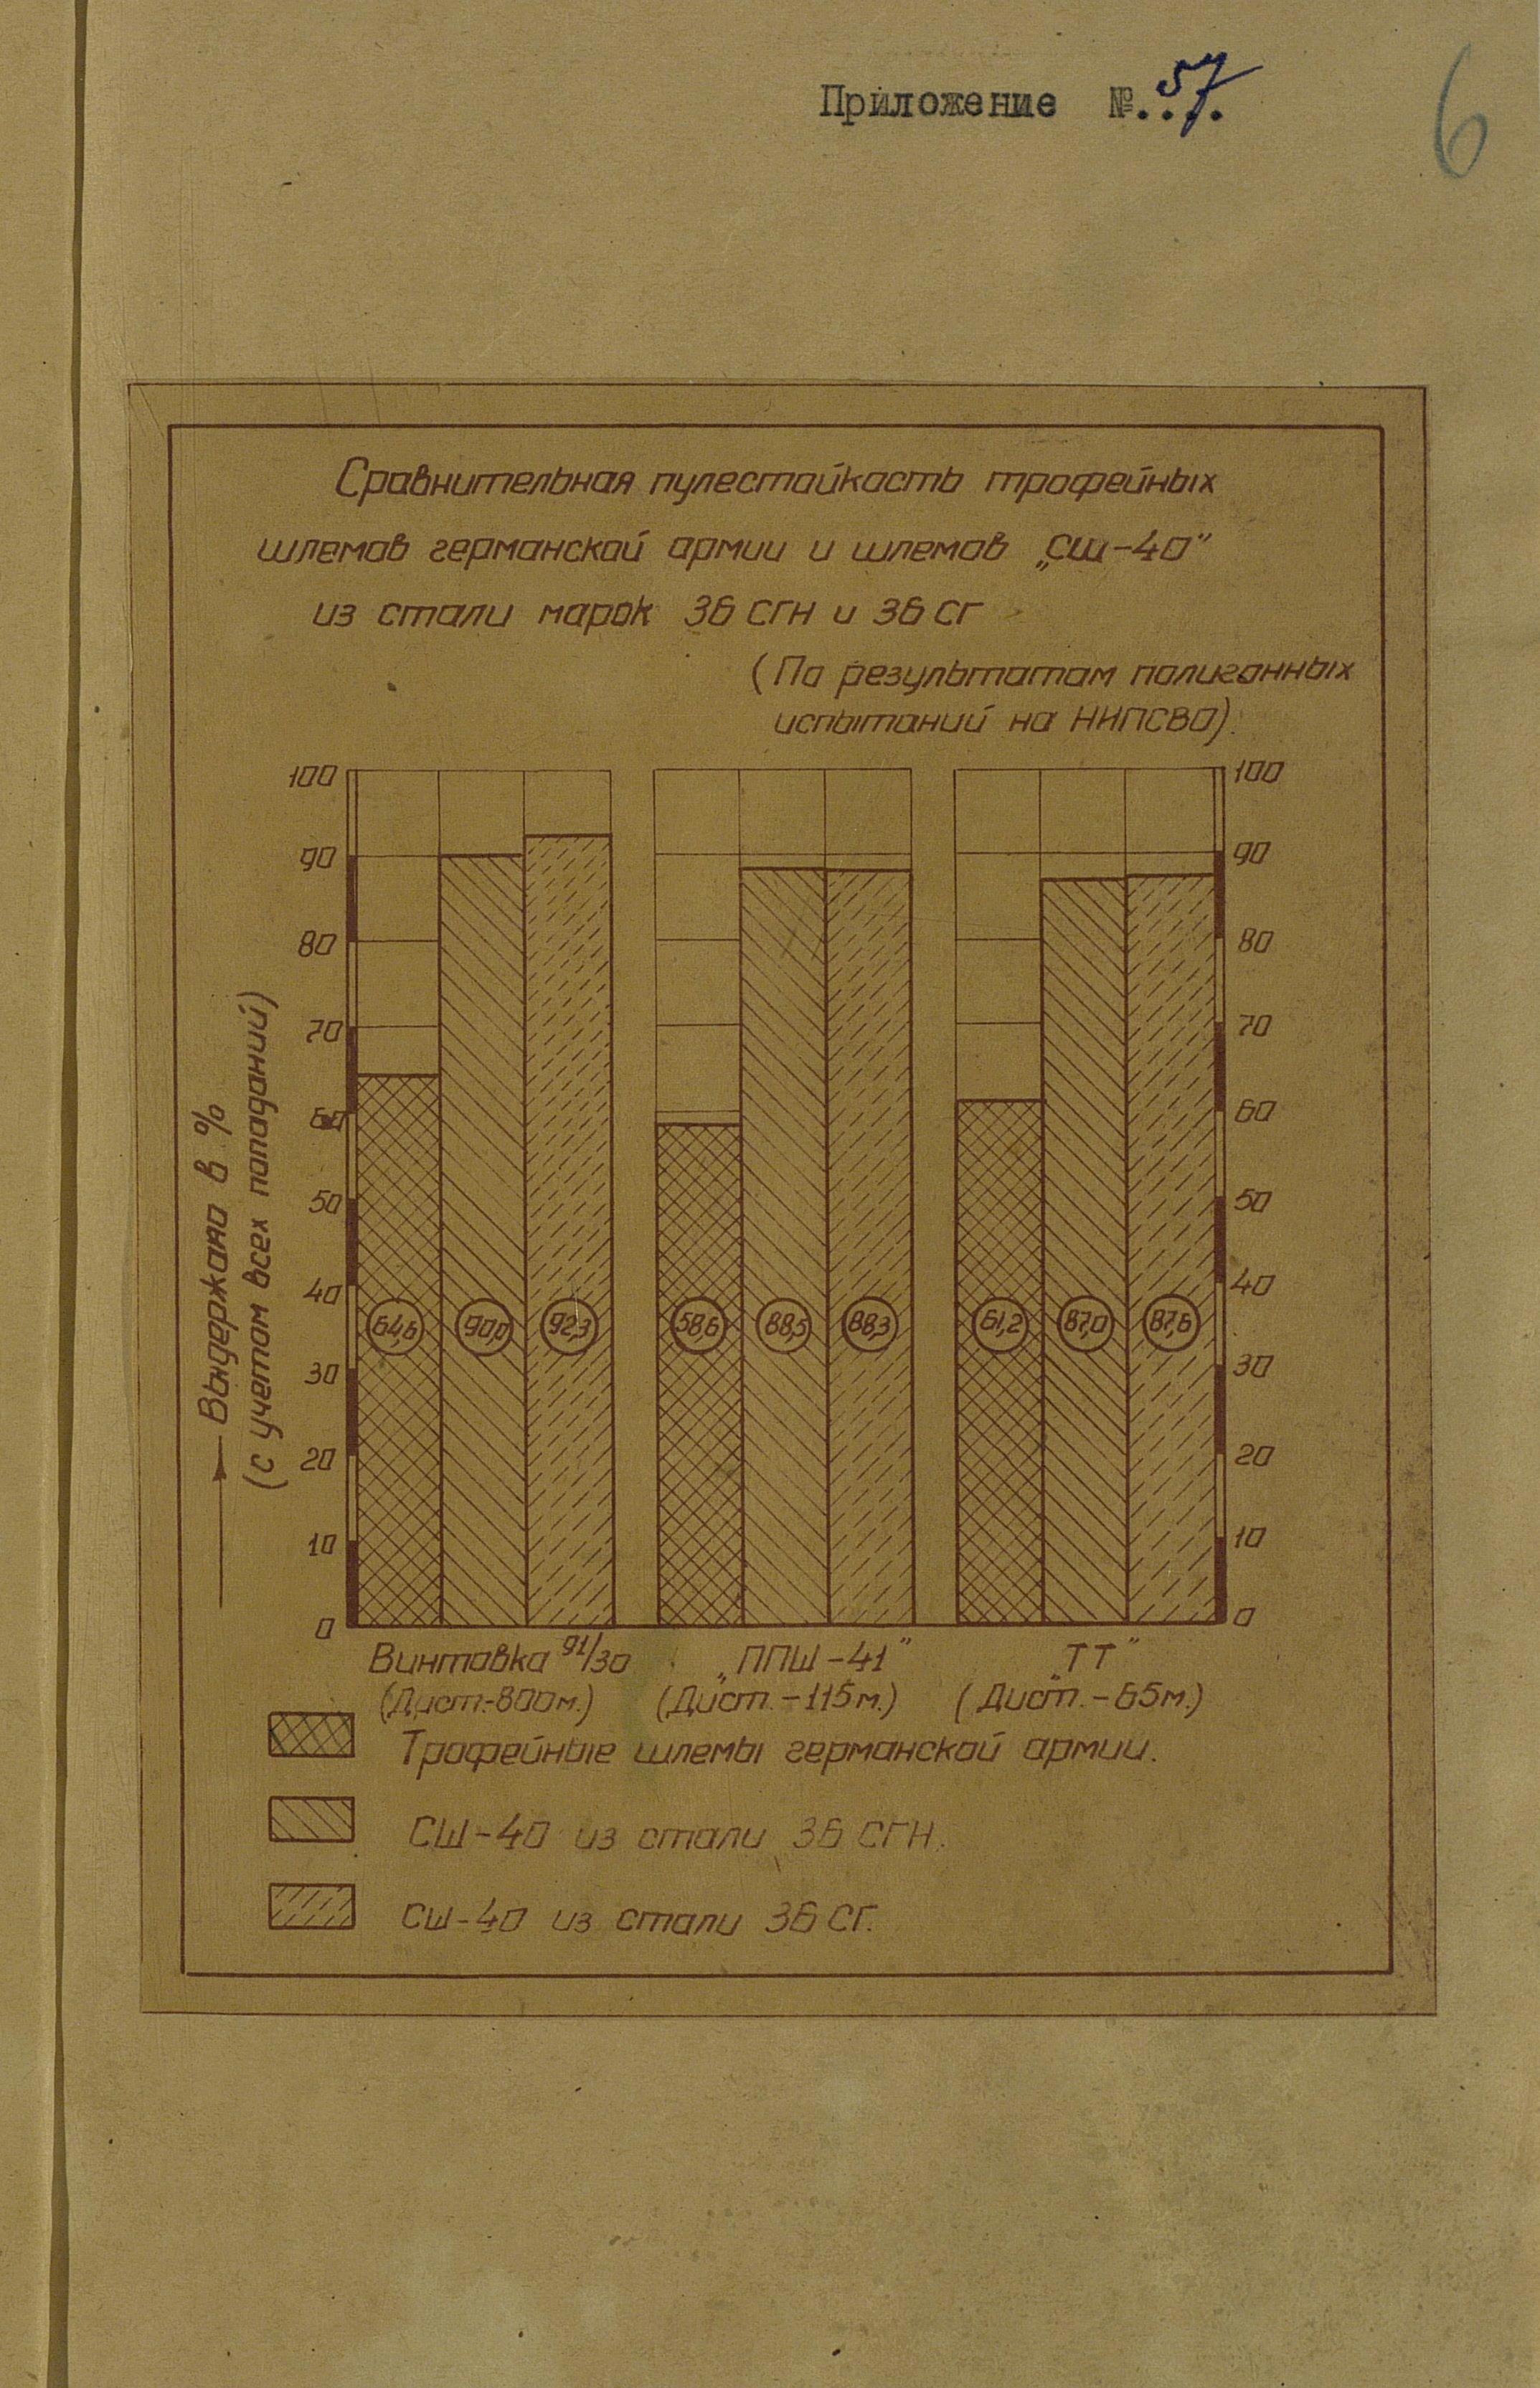 Приложение №. 57.
6
Сравнительная пулестойкость трофейных
шлемов германской армии и шлемов „СШ-40"
из стали марок 36 СГН и 36 СГ
(По результатам полигонных
испытаний на НИПСВО).
Выдержало в %
(с учетом всех попаданий)
100 100
90 90
80 80
70 70
60 60
50 50
40 40
64,6 90,0 92,3 58,6 88,5 88,3 61,2 87,0 87,6
30 30
20 20
10 10
0 0
Винтовка 91/30 „ППШ-41" „ТТ"
(Дист.-800м.) (Дист.-115м.) (Дист.-65м.)
Трофейные шлемы германской армии.
СШ-40 из стали 36 СГН.
СШ-40 из стали 36 СГ.